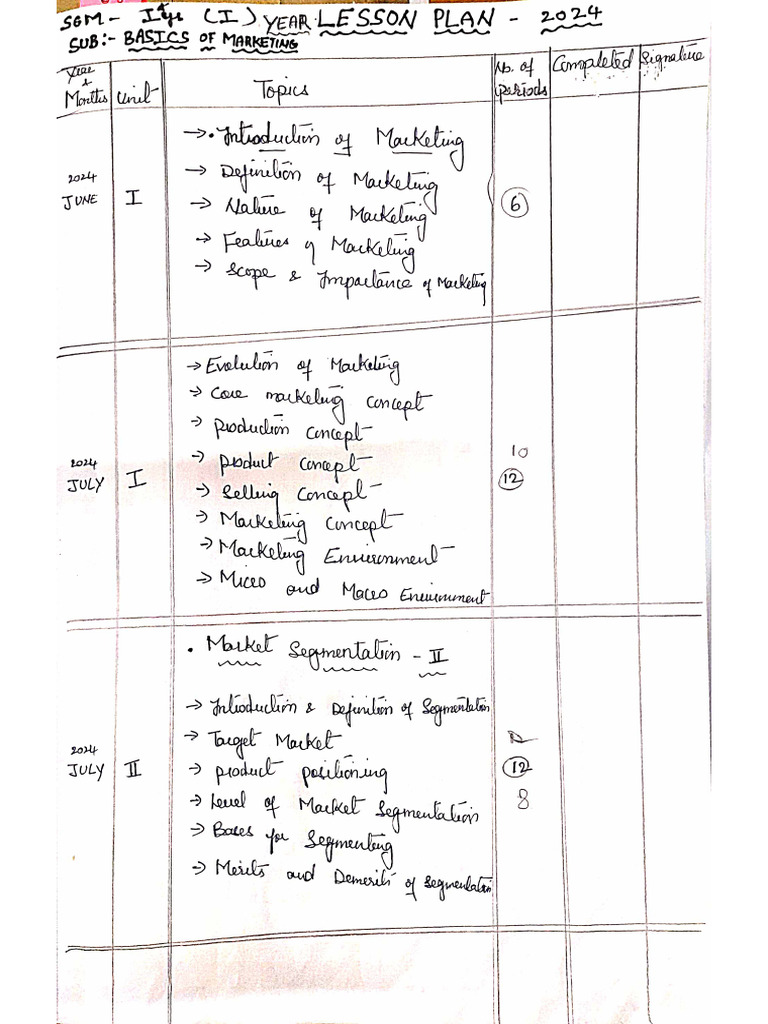 SGM - I Iyr (I) YEAR LESSON PLAN - 2024
SUB:- BASICS OF MARKETING
Year & Months Unit Topics No. of periods Completed Signature
2024 JUNE I
→ • Introduction of Marketing
→ Definition of Marketing
→ Nature of Marketing
→ Features of Marketing
→ Scope & Importance of Marketing
6
2024 JULY I
→ Evolution of Marketing
→ Core marketing concept
→ production concept
→ product concept
→ Selling concept
→ Marketing concept
→ Marketing Environment
→ Micro and Macro Environment
10
12
• Market Segmentation - II
2024 JULY II
→ Introduction & Definition of Segmentation
→ Target Market
→ product positioning
→ Level of Market Segmentation
→ Bases for Segmenting
→ Merits and Demerits of Segmentation
12
8